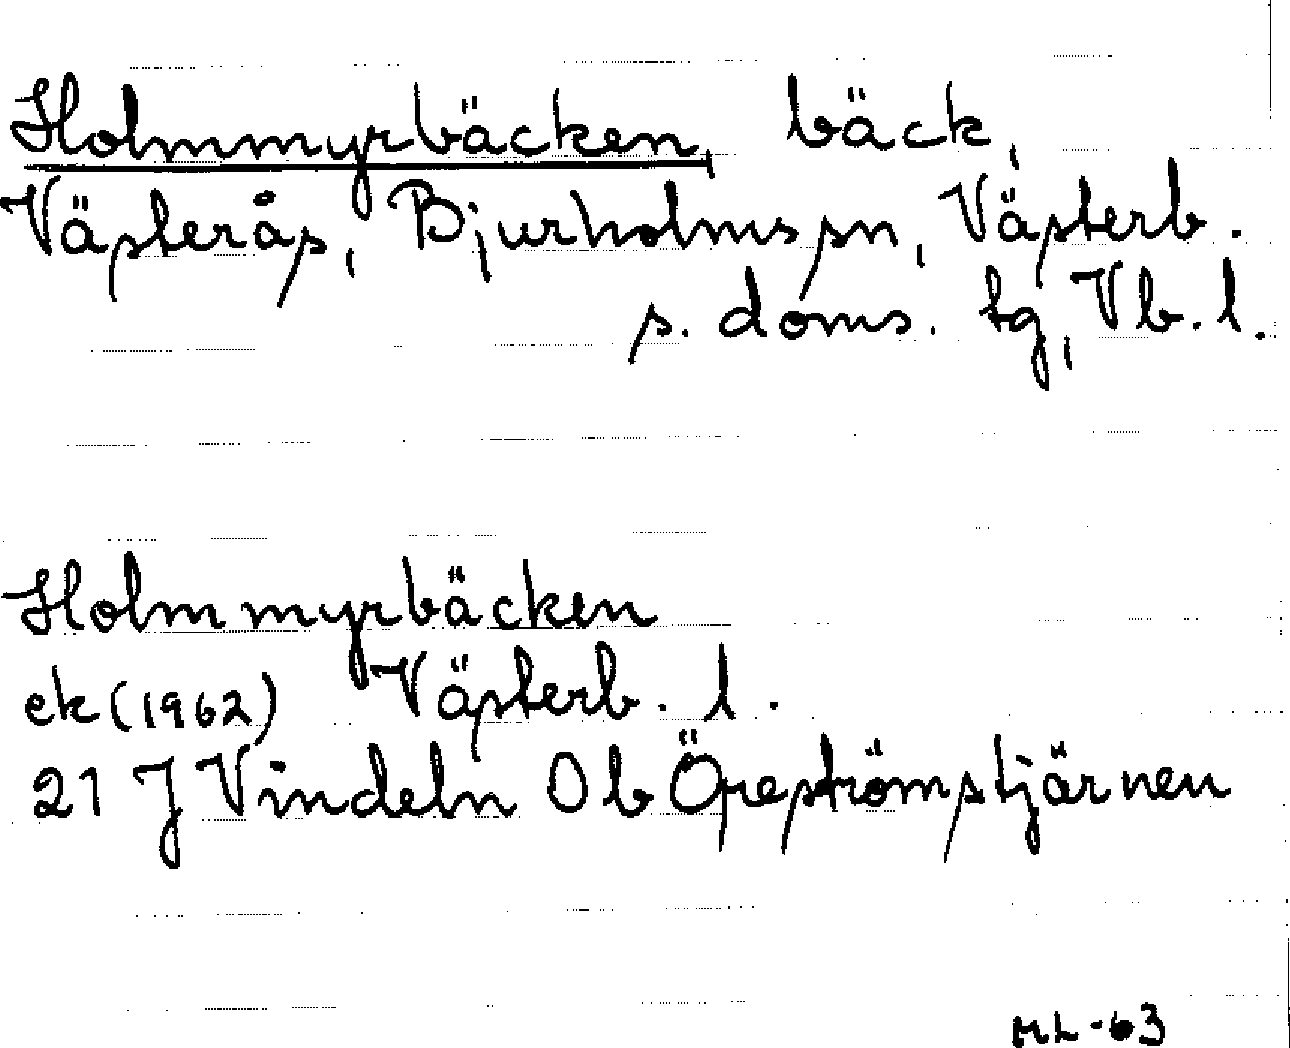 Holmmyrbäcken, bäck,
Västerås, Bjurholms sn, Västerb.
s. doms. tg, Vb. l.
Holmmyrbäcken
ek (1962) Västerb. l.
21 J Vindeln 0b Öreströmstjärnen
ML -63